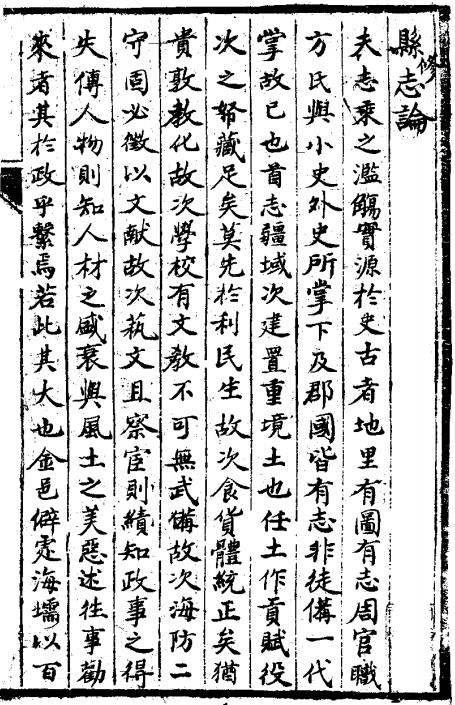 修縣志論
夫志乘之濫觴實源於史古者地里有圖有志周官職
方氏與小史外史所掌下及郡國皆有志非徒備一代
掌故已也首志疆域次建置重境土也任土作貢賦役
次之帑藏足矣莫先於利民生故次食貨體統正矣猶
貴敦教化故次學校有文教不可無武備故次海防二
守固必徵以文献故次藝文且察宦則績知政事之得
失傳人物則知人材之盛衰與風土之美惡述往事勸
來者其於政乎繫焉若此其大也金邑僻處海壖以百